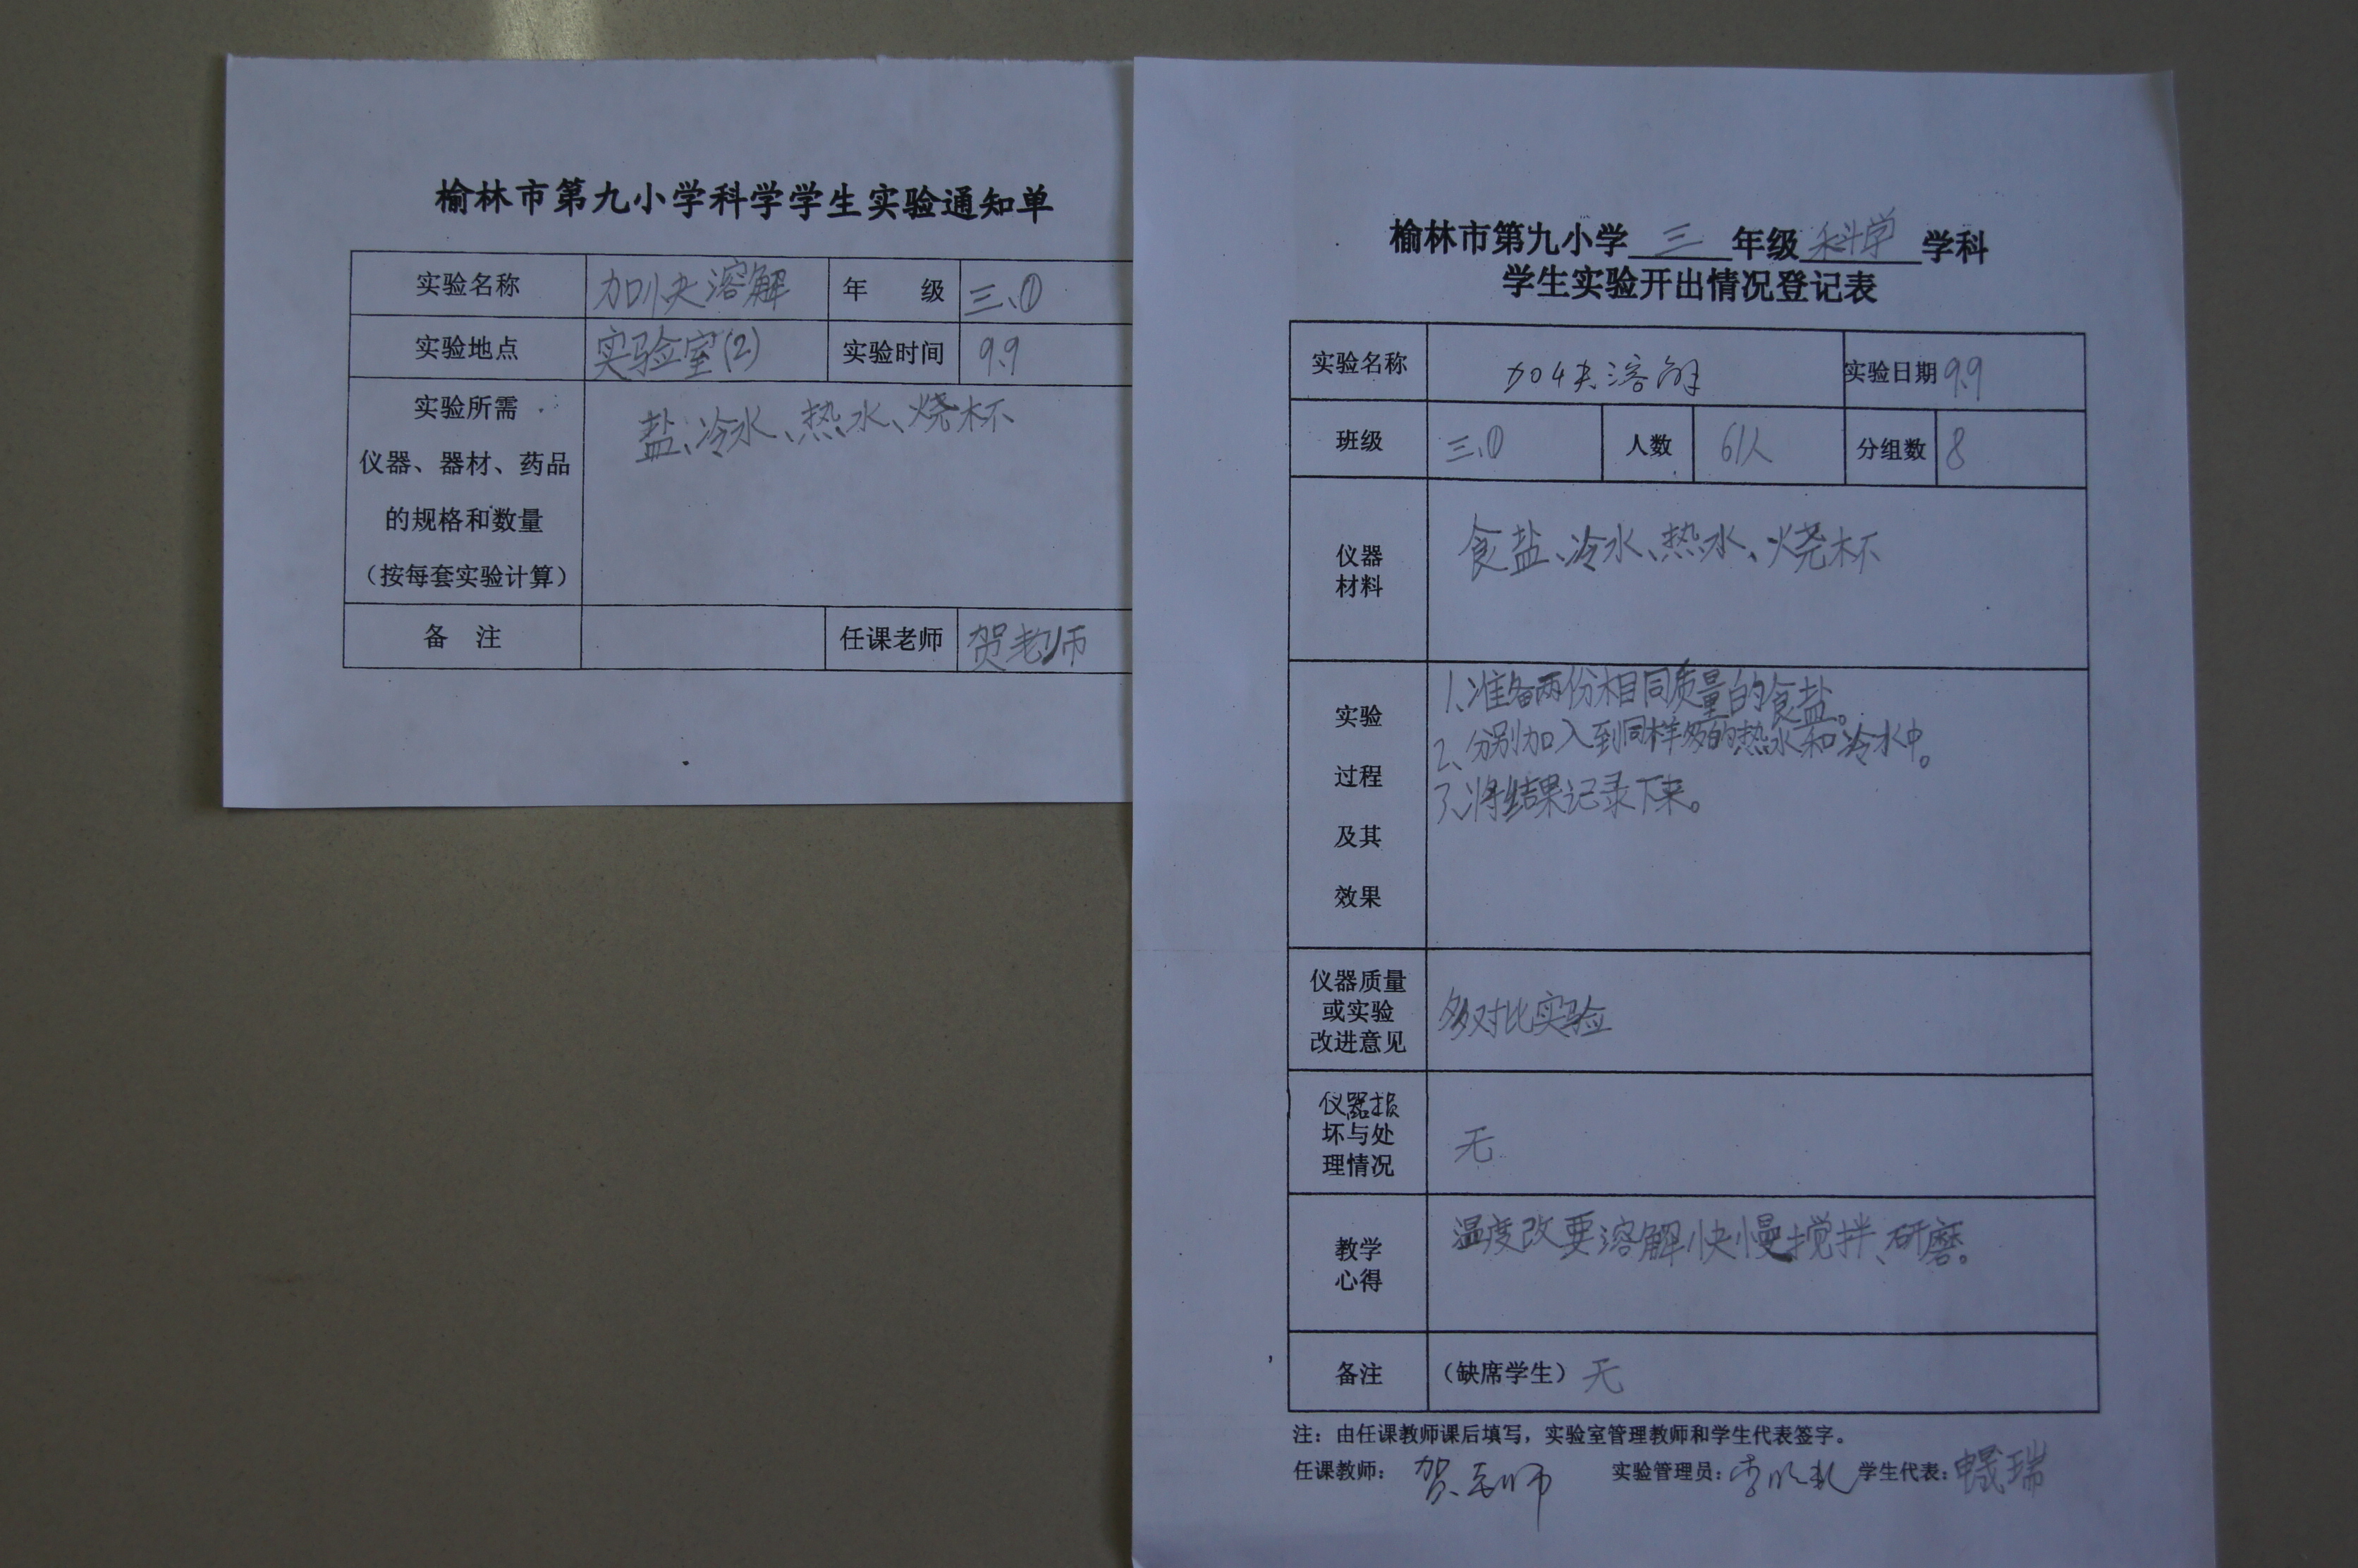 榆林市第九小学科学学生实验通知单
实验名称 加快溶解 年 级 三、①
实验地点 实验室(2) 实验时间 9.9
实验所需
仪器、器材、药品
的规格和数量
（按每套实验计算）
盐、冷水、热水、烧杯
备 注 任课老师 贺老师
榆林市第九小学 三 年级 科学 学科
学生实验开出情况登记表
实验名称 加快溶解 实验日期 9.9
班级 三、① 人数 61人 分组数 8
仪器
材料
食盐、冷水、热水、烧杯
实验
过程
及其
效果
1、准备两份相同质量的食盐。
2、分别加入到同样多的热水和冷水中。
3、将结果记录下来。
仪器质量
或实验
改进意见
多对比实验
仪器损
坏与处
理情况
无
教学
心得
温度改要溶解快慢搅拌、研磨。
备注 （缺席学生）无
注：由任课教师课后填写，实验室管理教师和学生代表签字。
任课教师： 贺老师 实验管理员： 学生代表：